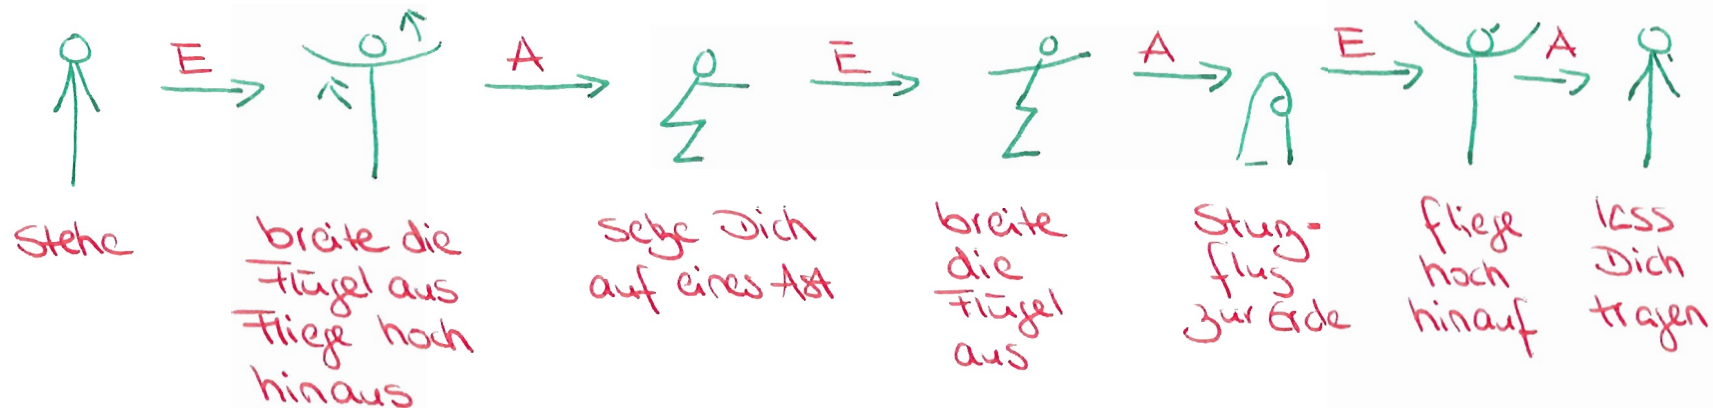 E
A
E
A
E
A
Stehe
breite die
Flügel aus
Fliege hoch
hinaus
setze Dich
auf eines Ast
breite
die
Flügel
aus
Sturz-
flug
zur Erde
fliege
hoch
hinauf
lass
Dich
tragen